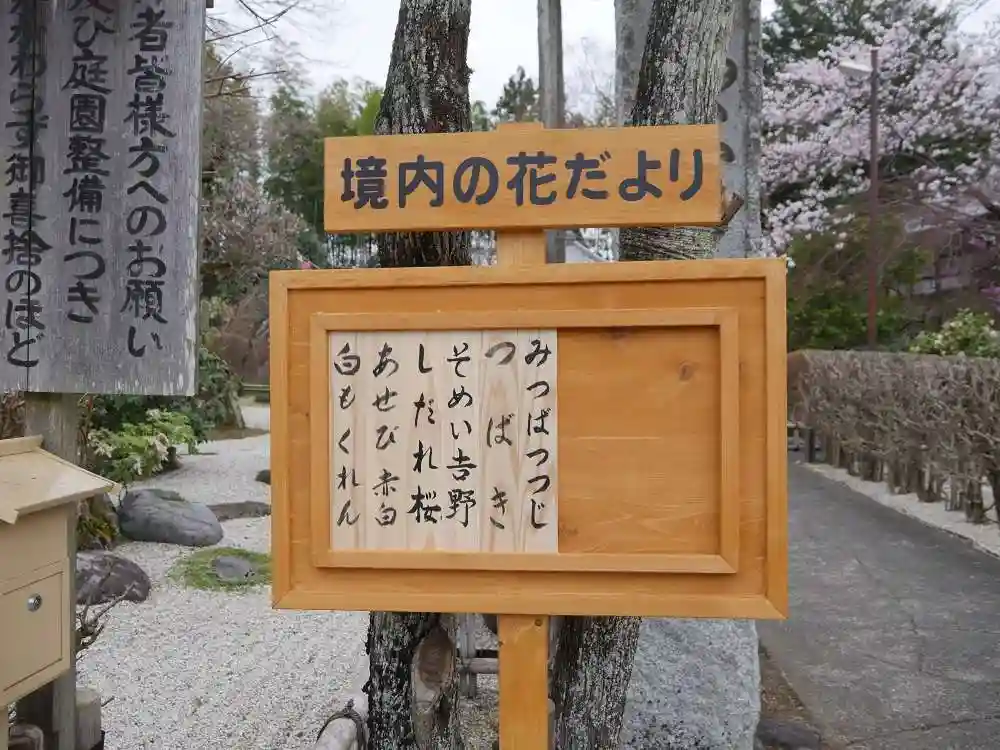 境内の花だより
みつばつつじ
つばき
そめい吉野
しだれ桜
あせび 赤白
白もくれん
者皆様方へのお願い
び庭園整備につき
わらず御喜捨のほど